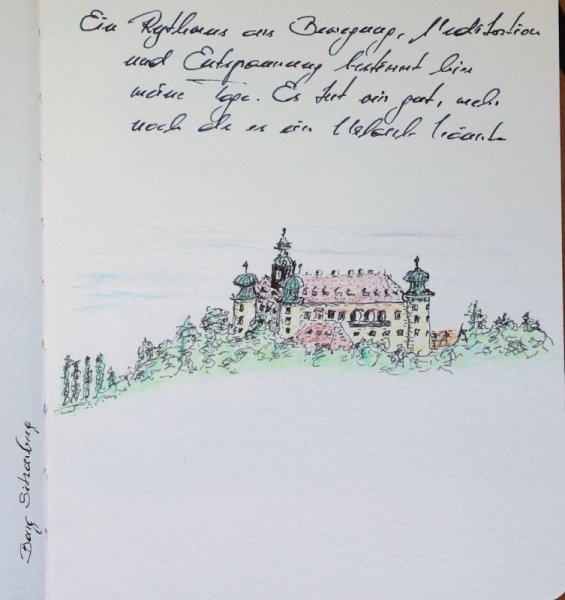 Ein Rythmus aus Bewegung, Meditation
und Entspannung bestimmt hier
meine Tage. Es tut mir gut, mehr
noch als es ein Urlaub könnte
Burg